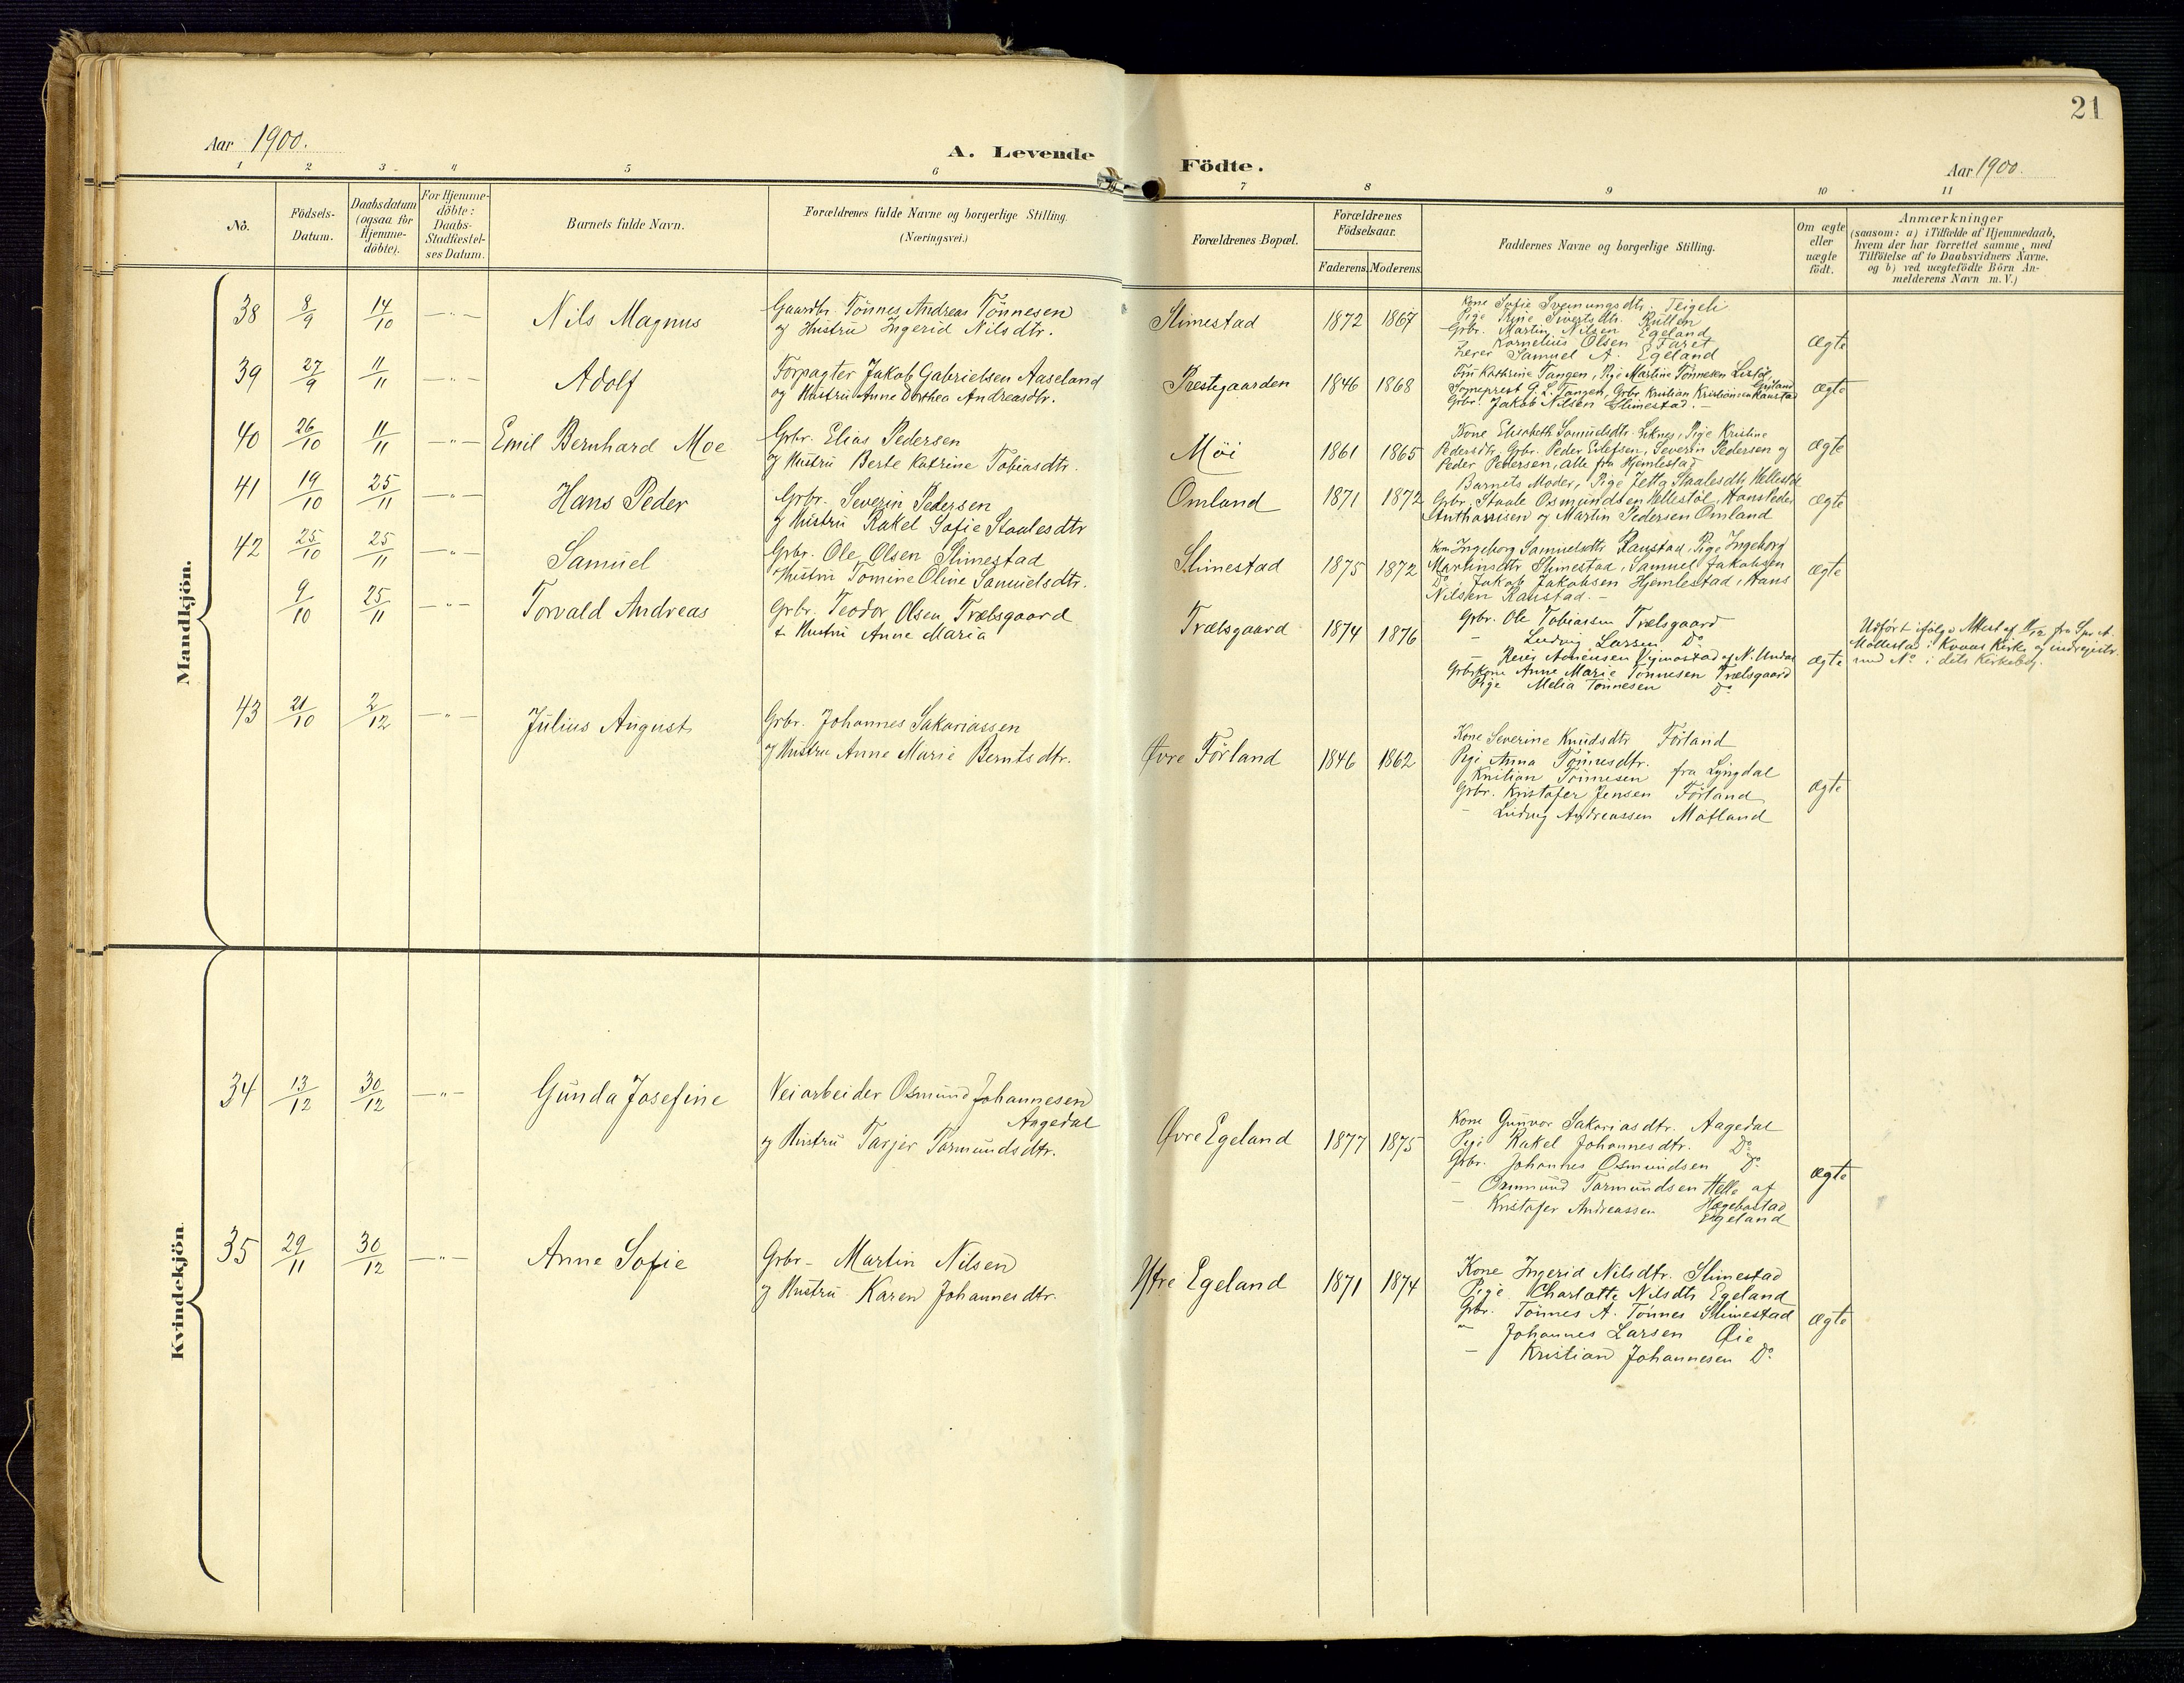 21
Aar 1900.
A. Levende Födte.
Aar 1900.
1 2 3 4 5 6 7 8 9 10 11
No.
Födsels-Datum.
Daabsdatum (ogsaa for Hjemme-döbte).
For Hjemme-döbte: Daabs-Stadfæstel-ses Datum.
Barnets fulde Navn.
Forældrenes fulde Navne og borgerlige Stilling.
(Næringsvei.)
Forældrenes Bopæl.
Forældrenes Födselsaar.
Faderens. Moderens.
Faddernes Navne og borgerlige Stilling.
Om ægte eller uægte födt.
Anmærkninger
(saasom: a) i Tilfælde af Hjemmedaab,
hvem der har forrettet samme, med
Tilföielse af to Daabsvidners Navne,
og b) ved uægtefödte Börn An-
melderens Navn m.V.)
Mandkjön.
38 8/9 14/10 —"— Nils Magnus
Gaardbr. Tønnes Andreas Tønnesen
og Hustru Ingerid Nilsdtr.
Slimestad 1872 1867
Kone Sofie Sveinungsdtr. Teigeli
Pige Trine Sivertsdtr. Rullen
Grbr. Martin Nilsen Egeland
Kornelius Olsen Faret
Lærer Samuel A. Egeland
ægte
39 27/9 11/11 —"— Adolf
Forpagter Jakob Gabrielsen Aaseland
og Hustru Anne Dorthea Andreasdtr.
Præstegaarden 1846 1868
Fru Kathrine Tangen, Pige Martine Tønnesen
Sogneprest G. L. Tangen, Grbr. Kristian Kristiansen Raustad
Grbr. Jakob Nilsen Slimestad. —
ægte
40 26/10 11/11 —"— Emil Bernhard Moe
Grbr. Elias Pedersen
og Hustru Berte Katrine Tobiasdtr.
Möi 1861 1865
Kone Elisabeth Samuelsdtr. Leknes, Pige Kristine
Pedersdtr, Grbr. Peder Eilefsen, Severin Pedersen og
Peder Pedersen, alle fra Hjemlestad
ægte
41 19/10 25/11 —"— Hans Peder
Grbr. Severin Pedersen
og Hustru Rakel Sofie Staalesdtr
Omland 1871 1872
Barnets Moder, Pige Jetta Staalesdtr, Hellestöl
Grbr. Staale Osmundsen Hellestöl, Hans Peder
Anthonisen og Martin Pedersen Omland
ægte
42 25/10 25/11 —"— Samuel
Grbr. Ole Olsen Slimestad
Hustru Tomine Oline Samuelsdtr.
Slimestad 1875 1872
Kone Ingeborg Samuelsdtr Raustad, Pige Ingeborg
Martinsdtr Slimestad, Samuel Jakobsen
Do, Jakob Jakobsen Hjemlestad, Hans
Nilsen Raustad. —
ægte
9/10 25/11 —"— Torvald Andreas
Grbr. Teodor Olsen Trælsgaard
& Hustru Anne Maria
Trælsgaard 1874 1876
Grbr. Ole Tobiassen Trælsgaard
— Ludvig Larsen Do
— Reier Vigmostad af N. Undal
Grbrkone Anne Marie Tönnesen Trælsgaard
Pige Melia Tönnesen Do
ægte
Udført ifølge Attest af 11/12 fra Spr. A.
Mollestad i Kvaas Kirke og indregistr.
und No i dets Kirkebog.
43 21/10 2/12 —"— Julius August
Grbr. Johannes Sakariassen
og Hustru Anne Marie Berntsdtr.
Øvre Förland 1846 1862
Kone Severine Knudsdtr Förland
Pige Anna Tönnesdtr.
Kristian Tönnesen fra Lyngdal
Grbr. Kristofer Jensen Förland
— Ludvig Andreassen Möfland
ægte
Kvindekjön.
34 13/12 30/12 —"— Gunda Josefine
Veiarbeider Osmund Johannesen
Aagedal
og Hustru Tarjer Tarmundsdtr.
Øvre Egeland 1877 1875
Kone Gunvor Sakariasdtr. Aagedal
Pige Rakel Johannesdtr. Do
Grbr. Johannes Osmundsen Do
— Osmund Tarmundsen Helle af
Hægebostad
— Kristofer Andreassen Egeland
ægte
35 29/11 30/12 —"— Anne Sofie
Grbr. Martin Nilsen
og Hustru Karen Johannesdtr.
Ytre Egeland 1871 1874
Kone Ingerid Nilsdtr. Slimestad
Pige Charlotte Nilsdtr Egeland
Grbr. Tönnes A. Tönnes Slimestad
" Johannes Larsen Øie
— Kristian Johannesen Do.
ægte